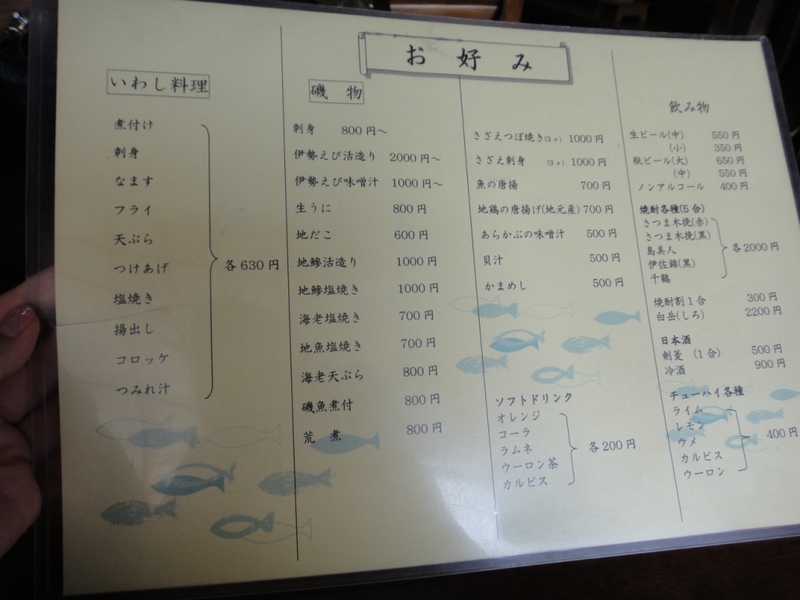 お好み
いわし料理
煮付け
刺身
なます
フライ
天ぷら
つけあげ
塩焼き
揚出し
コロッケ
つみれ汁
各630円
磯物
刺身 800円～
伊勢えび活造り 2000円～
伊勢えび味噌汁 1000円～
生うに 800円
地だこ 600円
地鯵活造り 1000円
地鯵塩焼き 1000円
海老塩焼き 700円
地魚塩焼き 700円
海老天ぷら 800円
磯魚煮付 800円
荒煮 800円
さざえつぼ焼き(3ヶ) 1000円
さざえ刺身 (3ヶ) 1000円
魚の唐揚 700円
地鶏の唐揚げ(地元産) 700円
あらかぶの味噌汁 500円
貝汁 500円
かまめし 500円
ソフトドリンク
オレンジ
コーラ
ラムネ
ウーロン茶
カルピス
各200円
飲み物
生ビール(中) 550円
(小) 350円
瓶ビール(大) 650円
(中) 550円
ノンアルコール 400円
焼酎各種(5合)
さつま木挽(赤)
さつま木挽(黒)
島美人
伊佐錦(黒)
千鶴
各2000円
焼酎割1合 300円
白岳(しろ) 2200円
日本酒
剣菱 (1合) 500円
冷酒 900円
チューハイ各種
ライム
レモン
ウメ
カルピス
ウーロン
400円